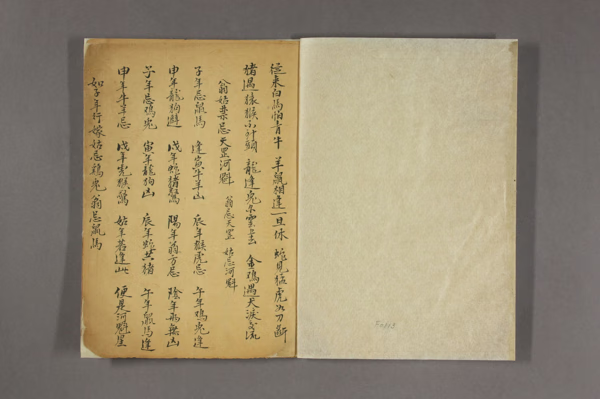 從來白馬怕青牛 羊鼠相逢一旦休 蛇見猛虎如刀斷
猪遇猿猴不到頭 龍逢兔兒雲 金鷄遇犬淚交流
翁姑禁忌天罡河魁 翁忌天罡 姑忌河魁
子年忌鼠馬 逢寅牛羊凶 辰年猴虎忌 午年鸡兔逢
申年龍狗避 戌年蛇猪驚 陽年翁方忌 陰年為無凶
子年忌鸡兔 寅年龍狗凶 辰年蛇共猪 午年鼠馬逢
申年牛羊忌 戌年虎猴驚 姑年若逢此 便是河魁星
如子年行嫁姑忌鸡兔翁忌鼠馬